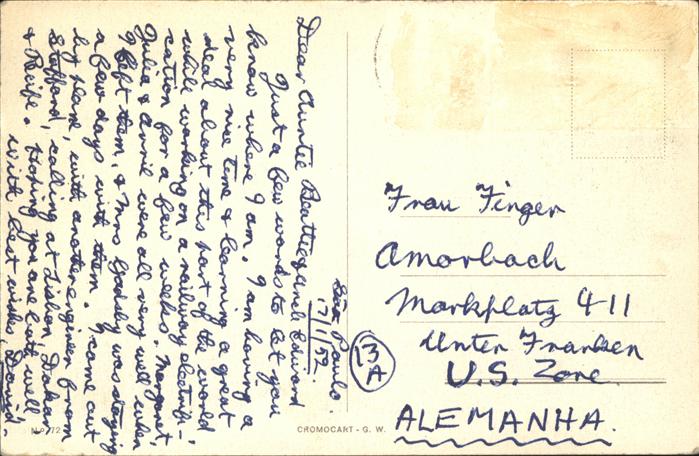 São Paulo.
17/1/52.
Dear Auntie Beattie and Edward
Just a few words to let you
know where I am. I am having a
very nice time & learning a great
deal about this part of the world
while working on a railway electrifi-
cation for a few weeks. Margaret,
Julia & Anne were all very well when
I left them, & Mrs was staying
a few days with them. I came out
by plane, with another engineer from
Stafford, calling at Lisbon, Dakar
& Recife. Hoping you are both well
With best wishes, David.
13
A
Frau Finger
Amorbach
Markplatz 4-11
Unter Franken
U.S. Zone
ALEMANHA.
CROMOCART - G. W.